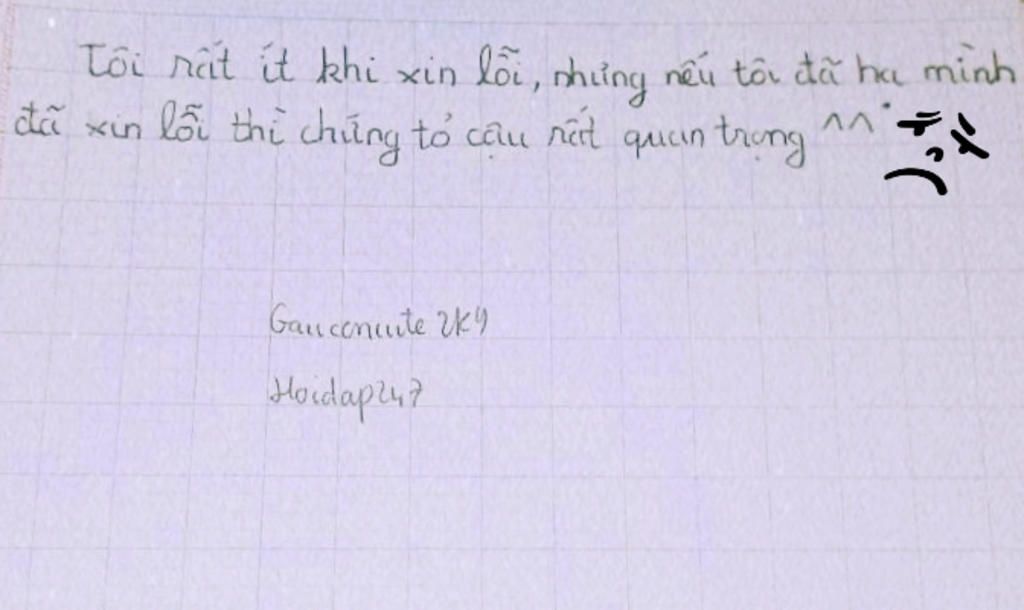 Tôi rất ít khi xin lỗi, nhưng nếu tôi đã hạ mình
đã xin lỗi thì chứng tỏ cậu rất quan trọng ^^
Gauconcute 2k9
Hoidap247